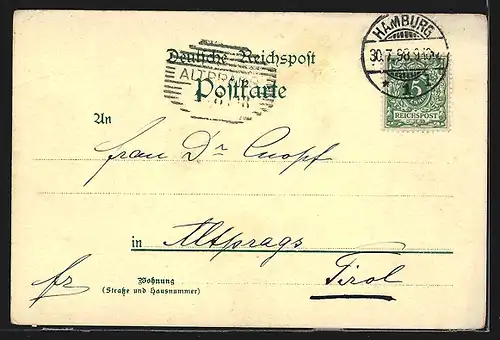 HAMBURG
30.7.98.9
Deutsche Reichspost
ALTPRAGS
Postkarte
5
REICHSPOST
An
Frau Dr Cnopf
in Altprags
Tirol
fr
Wohnung
(Straße und Hausnummer)